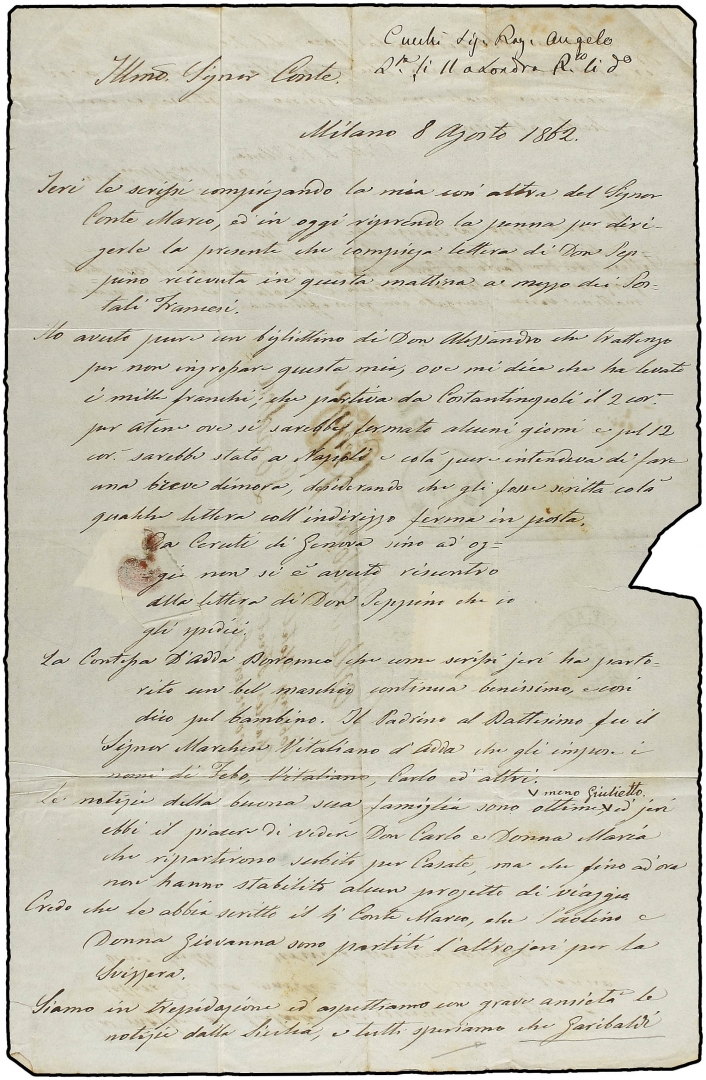 Cucchi Sig. Rag. Angelo
li 11 a Londra R.to li do
Illmo. Signor Conte.
Milano 8 Agosto 1862.
Jeri le scrissi compiegando la mia con altra del Signor
Conte Marco, ed in oggi riprendo la penna per diri-
gerle la presente che compiega lettera di Don Pep-
pino ricevuta in questa mattina a mezzo dei Pos-
tali Francesi.
Ho avuto pure un bigliettino di Don Alessandro che trattengo
per non ingropare questa mia, ove mi dice che ha levato
i mille franchi, che partiva da Costantinopoli il 2 cor.e
per Atene ove si sarebbe fermato alcuni giorni e pel 12
cor.e sarebbe stato a Napoli e colà pure intendeva di fare
una breve dimora, desiderando che gli fosse scritta colà
qualche lettera coll'indirizzo ferma in posta.
Da Ceruti di Genova sino ad og-
gi non si è avuto riscontro
alla lettera di Don Peppino che io
gli spedii.
La Contessa D'Adda Borromeo che come scrissi jeri ha parto-
rito un bel maschio continua benissimo, e così
dico pel bambino. Il Padrino al Battesimo fu il
Signor Marchese Vitaliano d'Adda che gli impose i
nomi di Febo, Vitaliano, Carlo ed altri.
V meno Giulietto.
Le notizie della buona sua famiglia sono ottime V ed jeri
ebbi il piacer di veder Don Carlo e Donna Maria
che ripartirono subito per Casate, ma che fino ad ora
non hanno stabilito alcun progetto di viaggio.
Credo che le abbia scritto il Conte Marco, che Paolino e
Donna Giovanna sono partiti l'altro jeri per la
Svizzera.
Siamo in trepidazione ed aspettiamo con grave ansietà le
notizie dalla Sicilia, e tutti speriamo che Garibaldi